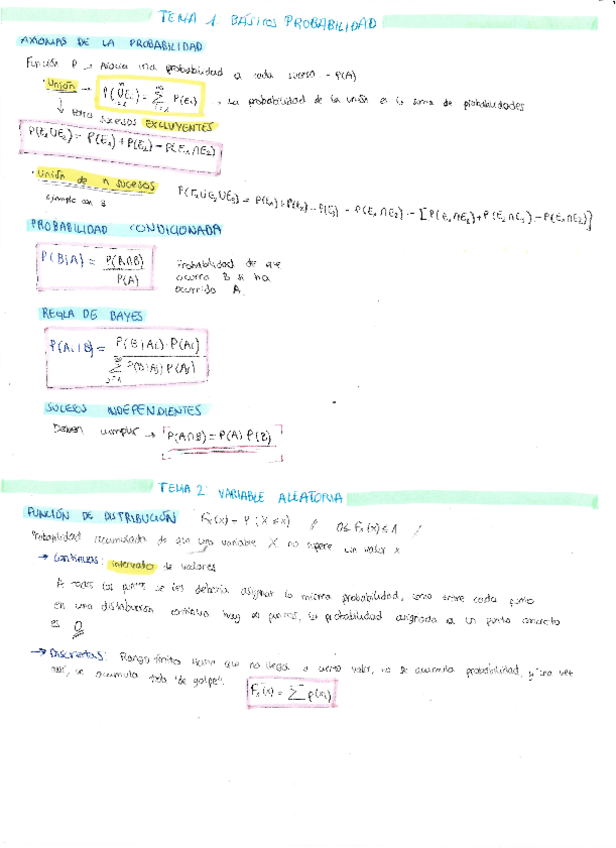 TEMA 1. BÁSICOS PROBABILIDAD
AXIOMAS DE LA PROBABILIDAD
Función P → Asocia una probabilidad a cada suceso - P(A)
· Unión → P(∪Ei) = Σ P(Ei) → La probabilidad de la unión es la suma de probabilidades
↓ para sucesos EXCLUYENTES
P(E1∪E2) = P(E1) + P(E2) - P(E1∩E2)
· Unión de n sucesos
Ejemplo con 3
PROBABILIDAD CONDICIONADA
P(B|A) = P(A∩B) / P(A)
Probabilidad de que
ocurra B si ha
ocurrido A.
REGLA DE BAYES
P(Ai|B) = P(B|Ai)·P(Ai) / Σ P(B|Aj) P(Aj)
SUCESOS INDEPENDIENTES
Deben cumplir → P(A∩B) = P(A) P(B)
TEMA 2: VARIABLE ALEATORIA
FUNCIÓN DE DISTRIBUCIÓN Fx(x) = P(X≤x) / 0≤Fx(x)≤1 /
Probabilidad acumulada de que una variable X no supere un valor x
→ Continuas: intervalo de valores
A todos los puntos se les debería asignar la misma probabilidad, como entre cada punto
en una distribución continua hay ∞ puntos, la probabilidad asignada a un punto concreto
es 0
→ Discretas: Rango finito. Hasta que no llega a cierto valor, no se acumula probabilidad, y una vez
se acumula toda "de golpe". Fx(x) = Σ p(xi)